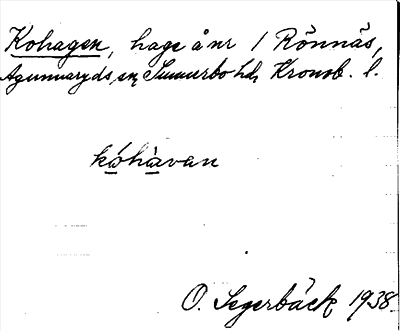 Kohagen, hage å nr 1 Rönnäs,
Agunnaryds sn, Sunnerbo hd, Kronob. l.
kóhàvan
O. Segerbäck 1938.